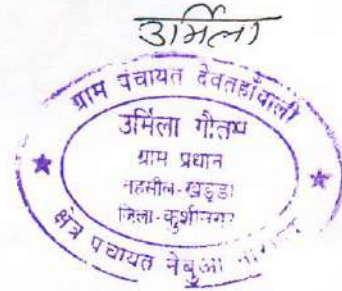 उर्मिला
ग्राम पंचायत देवतहाँवाली
उर्मिला गौतम
ग्राम प्रधान
तहसील-खड्डा
जिला-कुशीनगर
क्षेत्र पंचायत नेबुआ